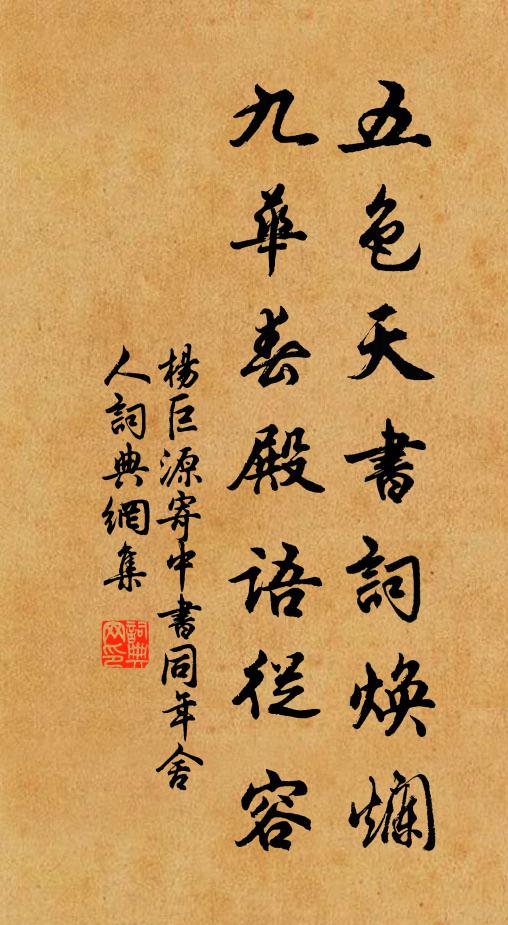 五色天書詞煥爛
九華春殿語從容
楊巨源寄中書同年舍
人詞典網集
詞典
网印